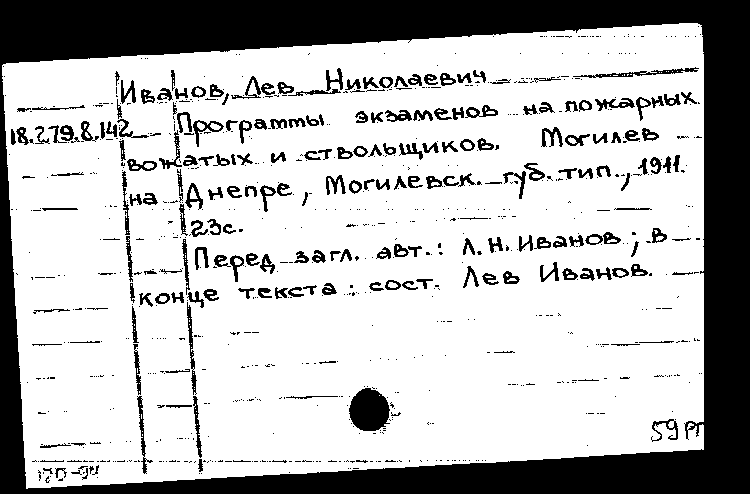 Иванов, Лев Николаевич
18.279.8.142 Программы экзаменов на пожарных
вожатых и ствольщиков. Могилев
на Днепре, Могилевск. губ. тип., 1911.
23с.
Перед загл. авт.: Л.Н. Иванов; в
конце текста: сост. Лев Иванов.
59 РП